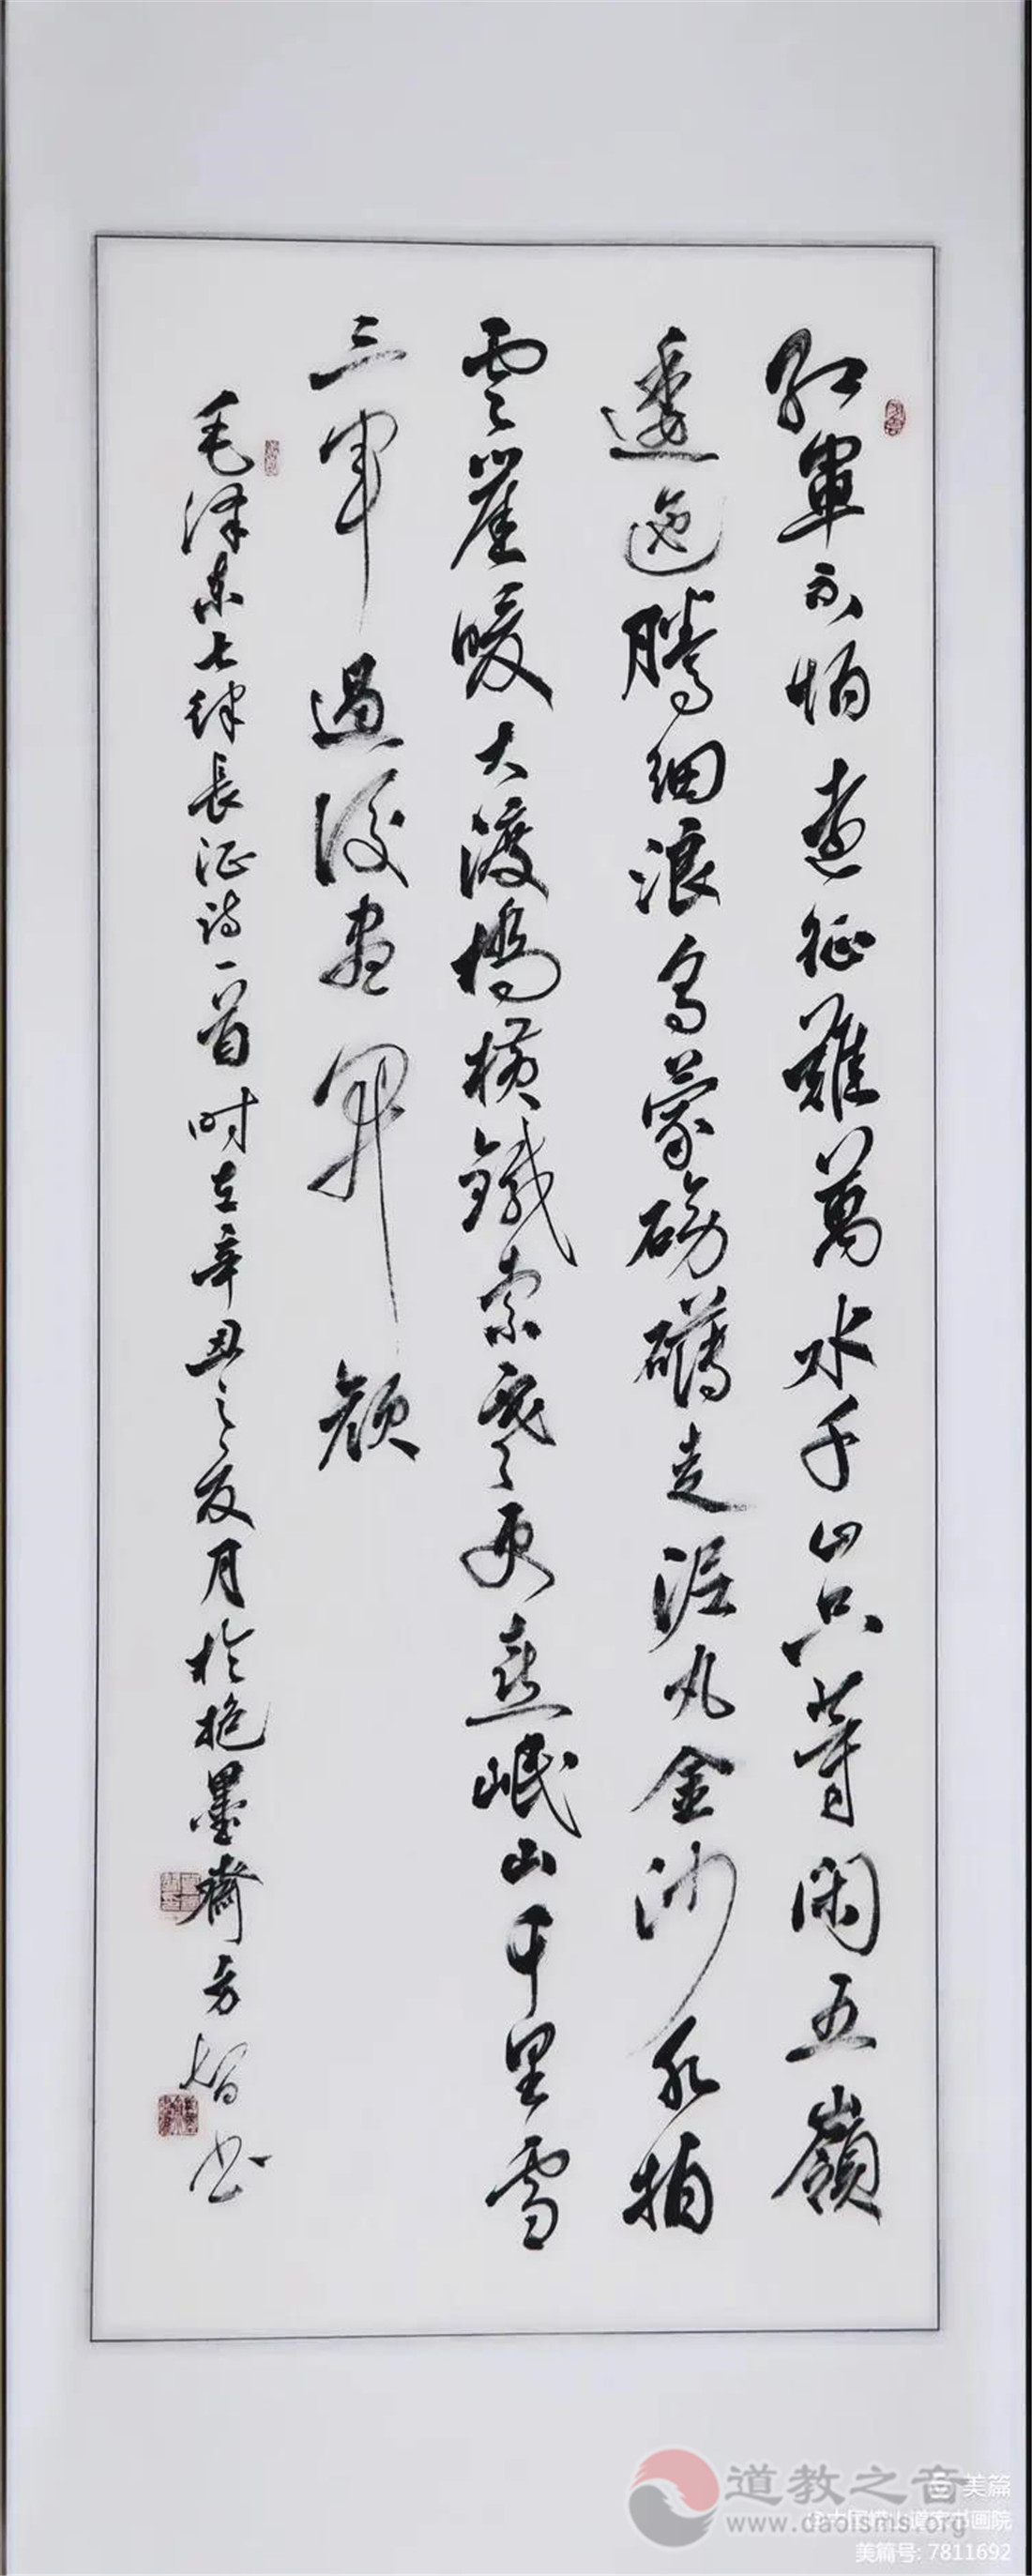 紅軍不怕遠征難萬水千山只等閑五嶺
逶迤騰細浪烏蒙磅礴走泥丸金沙水拍
雲崖暖大渡橋橫鐵索寒更喜岷山千里雪
三軍過後盡開顏
毛澤東七律長征詩一首時在辛丑之夏月於抱墨齋方智書
道教之音
www.daoisms.org
美篇
美篇号: 7811692